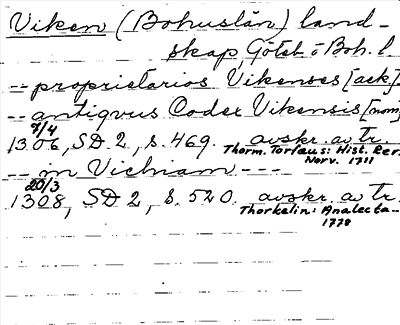 Viken (Bohuslän) land-
skap, Göteb. o Boh. l.
-- proprietarios Vikenses [ack].
-- antiqvus Codex Vikensis [nom]
7/4
1306, SD 2, s. 469. avskr. av Tr.
Thorm. Torfæus: Hist. Rer.
Norv. 1711
-- in Vichiam ---
20/3
1308, SD 2, s. 520. avskr. av Tr.
Thorkelin: Analecta --
1778